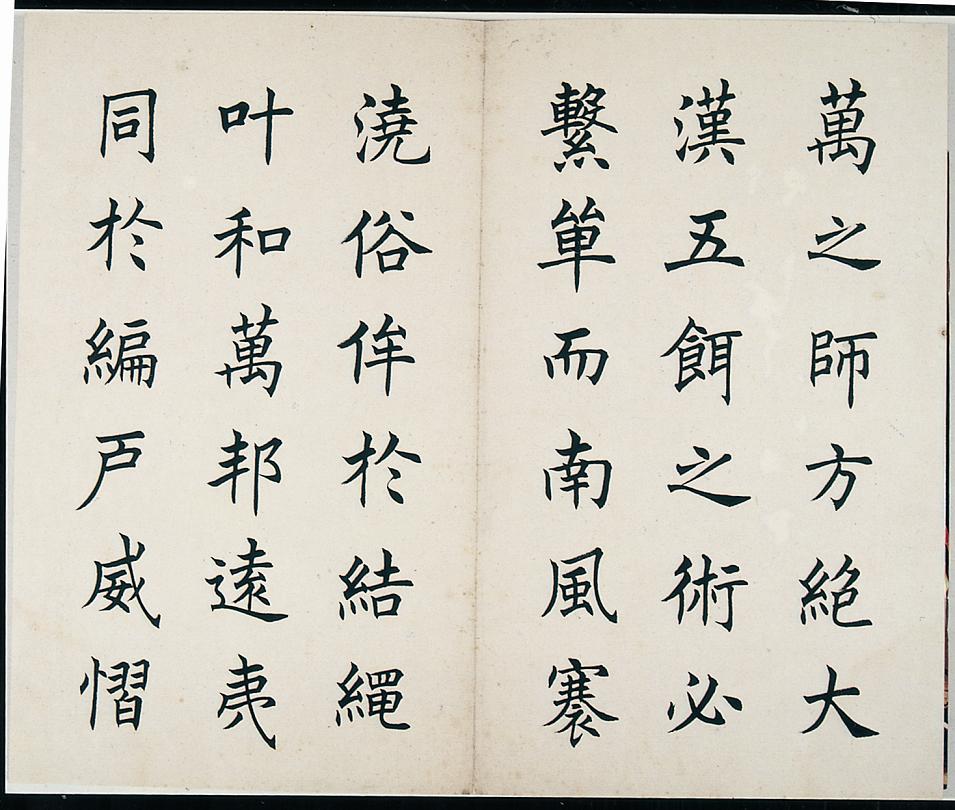 萬之師方絕大
漢五餌之術必
繫單而南風褰
澆俗侔於結繩
叶和萬邦遠夷
同於編戶威慴